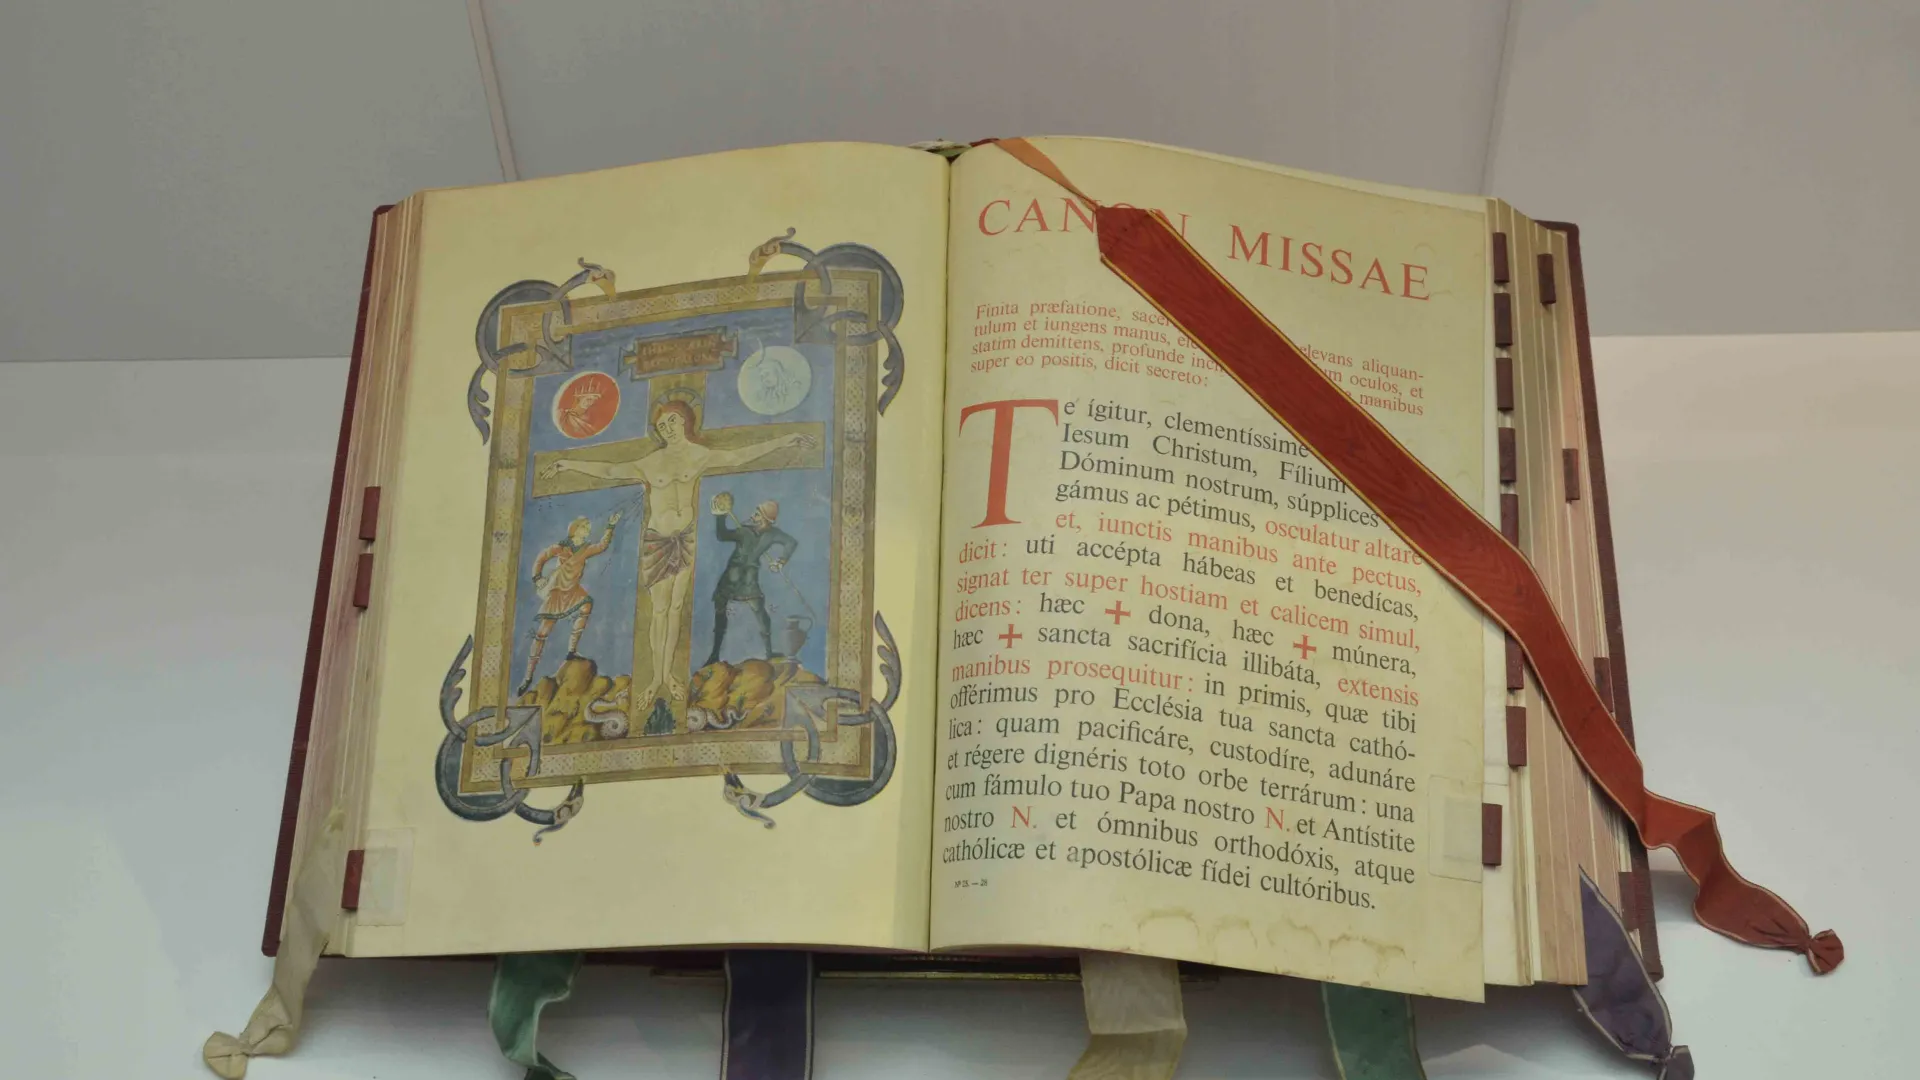 CANON MISSAE
Finita præfatione, sacer
tulum et iungens manus, ele elevans aliquan-
statim demittens, profunde incl um oculos, et
super eo positis, dicit secreto: manibus
Te ígitur, clementíssime
Iesum Christum, Fílium
Dóminum nostrum, súpplices
gámus ac pétimus, osculatur altare
et, iunctis manibus ante pectus,
dicit: uti accépta hábeas et benedícas,
signat ter super hostiam et calicem simul,
dicens: hæc ✚ dona, hæc ✚ múnera,
hæc ✚ sancta sacrifícia illibáta, extensis
manibus prosequitur: in primis, quæ tibi
offérimus pro Ecclésia tua sancta cathó-
lica: quam pacificáre, custodíre, adunáre
et régere dignéris toto orbe terrárum: una
cum fámulo tuo Papa nostro N. et Antístite
nostro N. et ómnibus orthodóxis, atque
cathólicæ et apostólicæ fídei cultóribus.